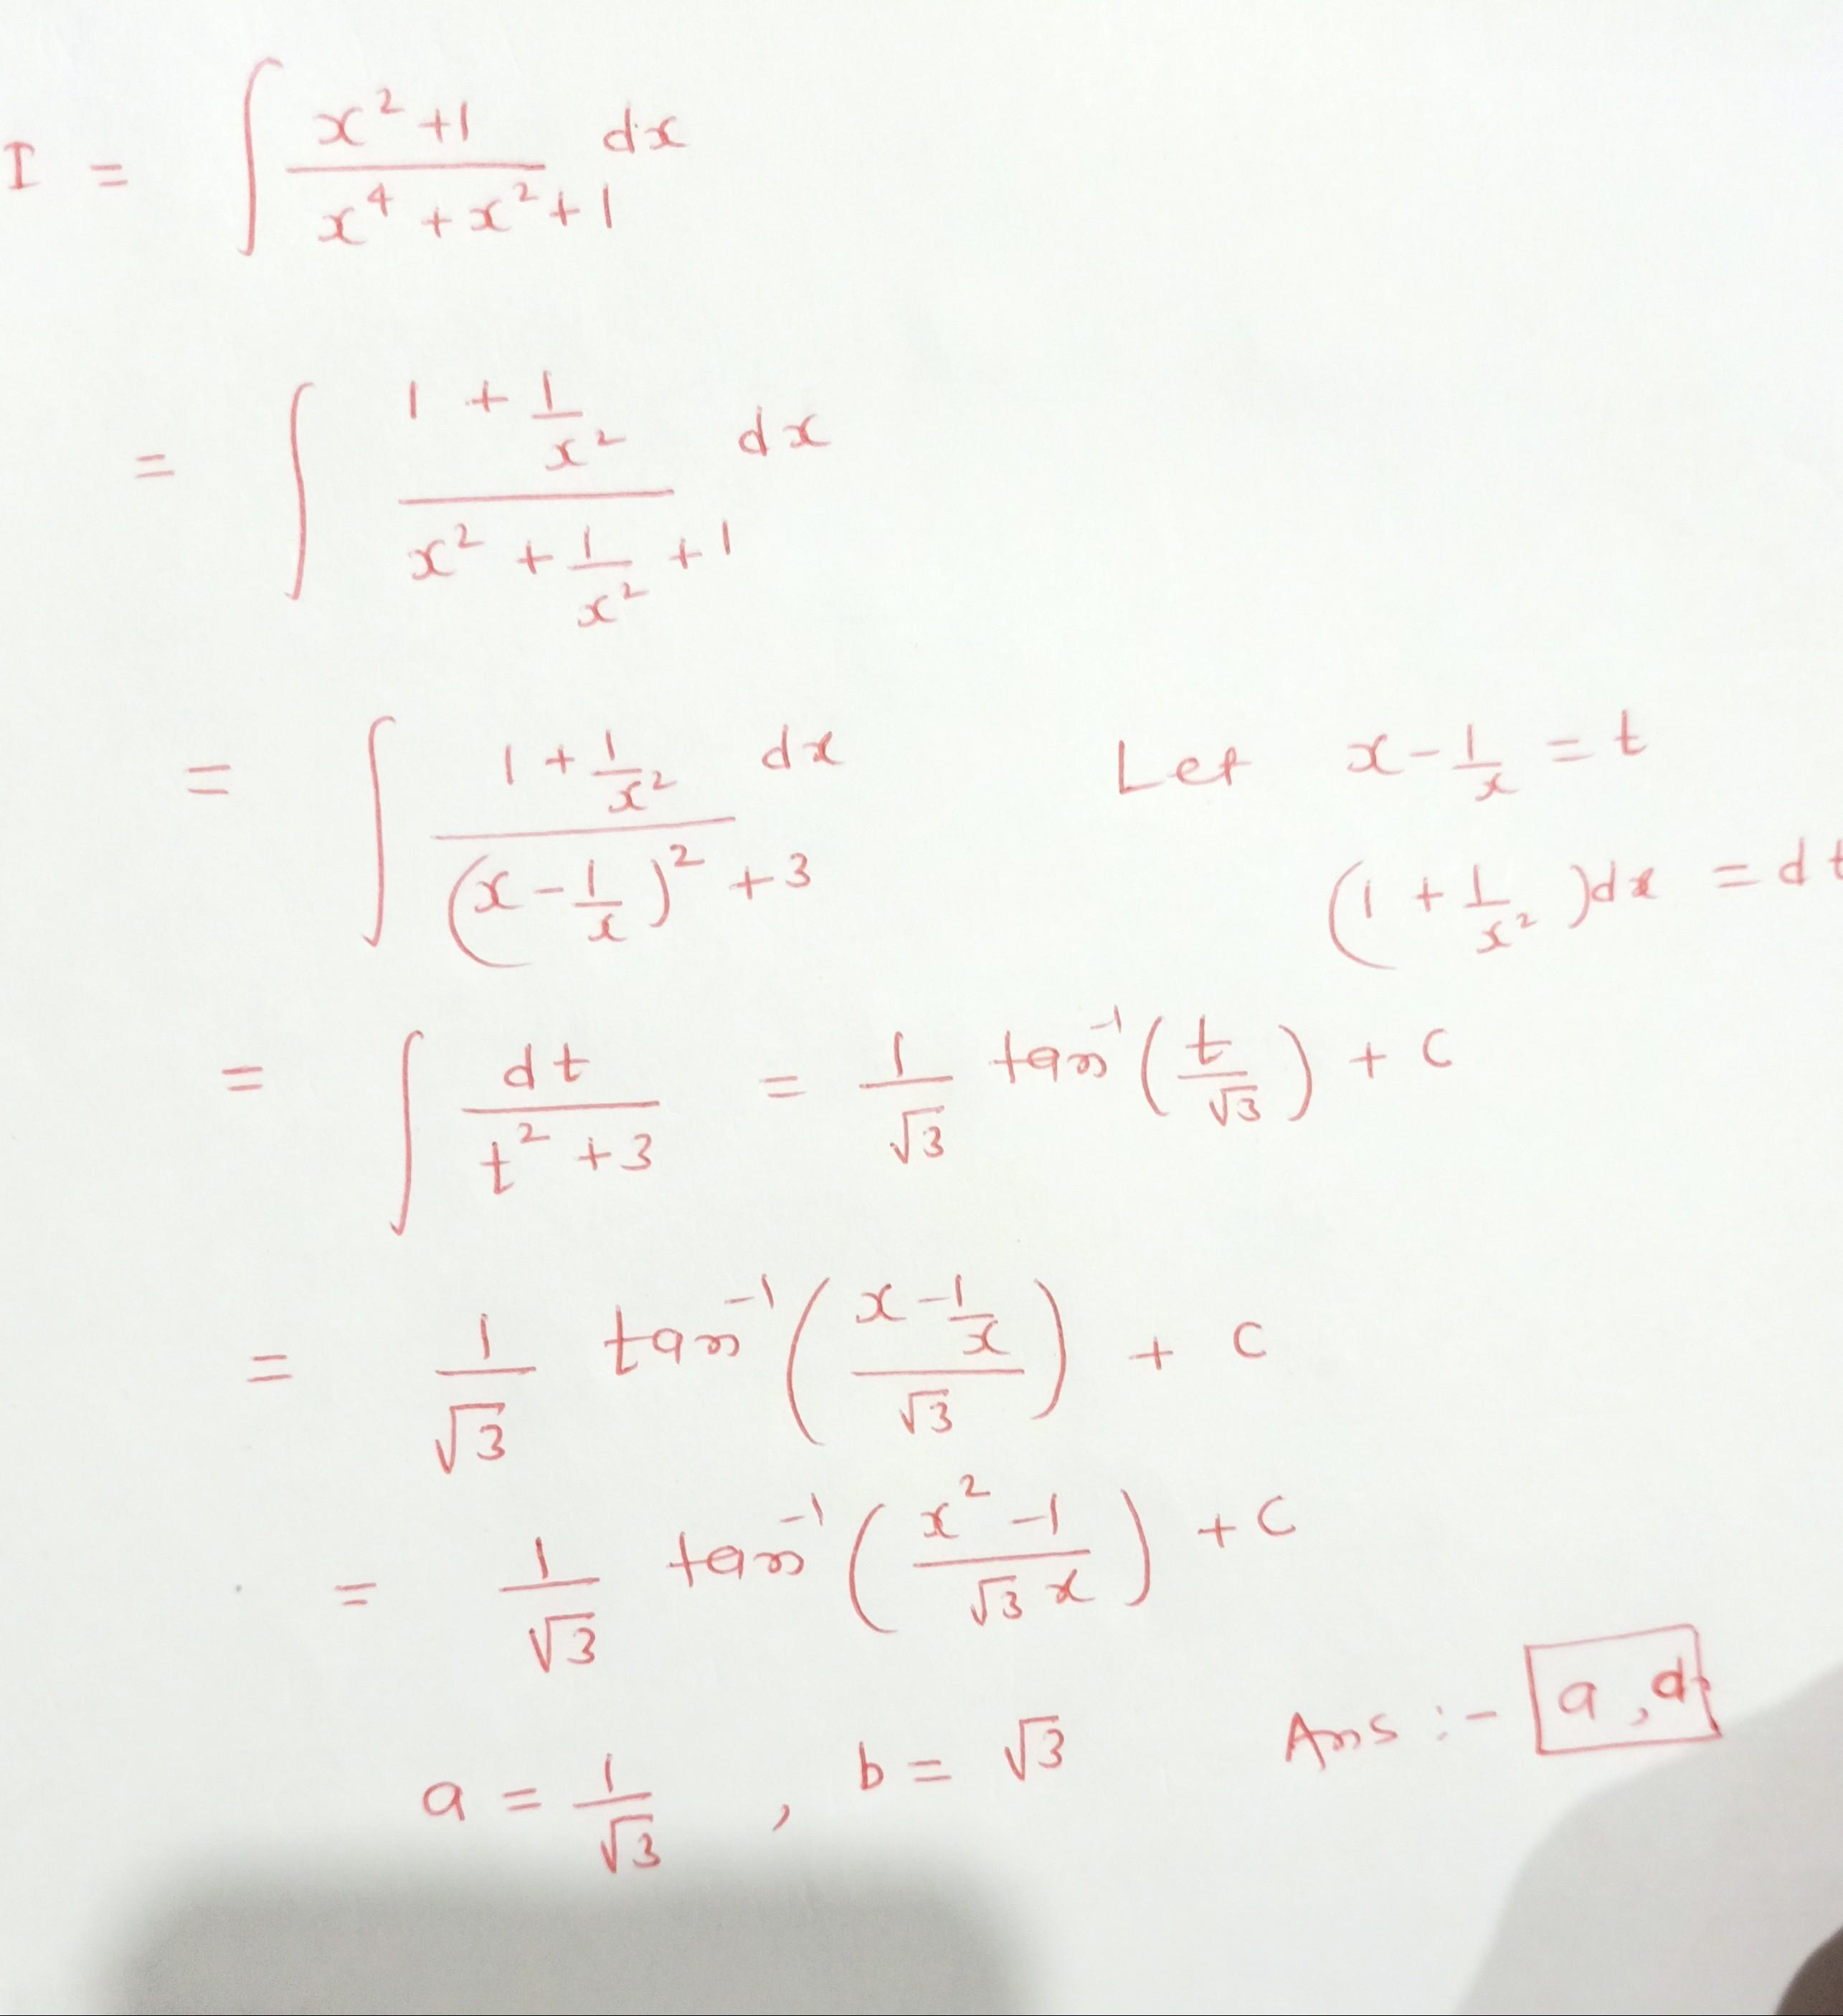 I = ∫ (x² + 1)/(x⁴ + x² + 1) dx
= ∫ (1 + 1/x²)/(x² + 1/x² + 1) dx
= ∫ (1 + 1/x²)/((x - 1/x)² + 3) dx Let x - 1/x = t
(1 + 1/x²)dx = dt
= ∫ dt/(t² + 3) = 1/√3 tan⁻¹(t/√3) + C
= 1/√3 tan⁻¹((x - 1/x)/√3) + C
= 1/√3 tan⁻¹((x² - 1)/(√3 x)) + C
a = 1/√3 , b = √3 Ans :- a, d